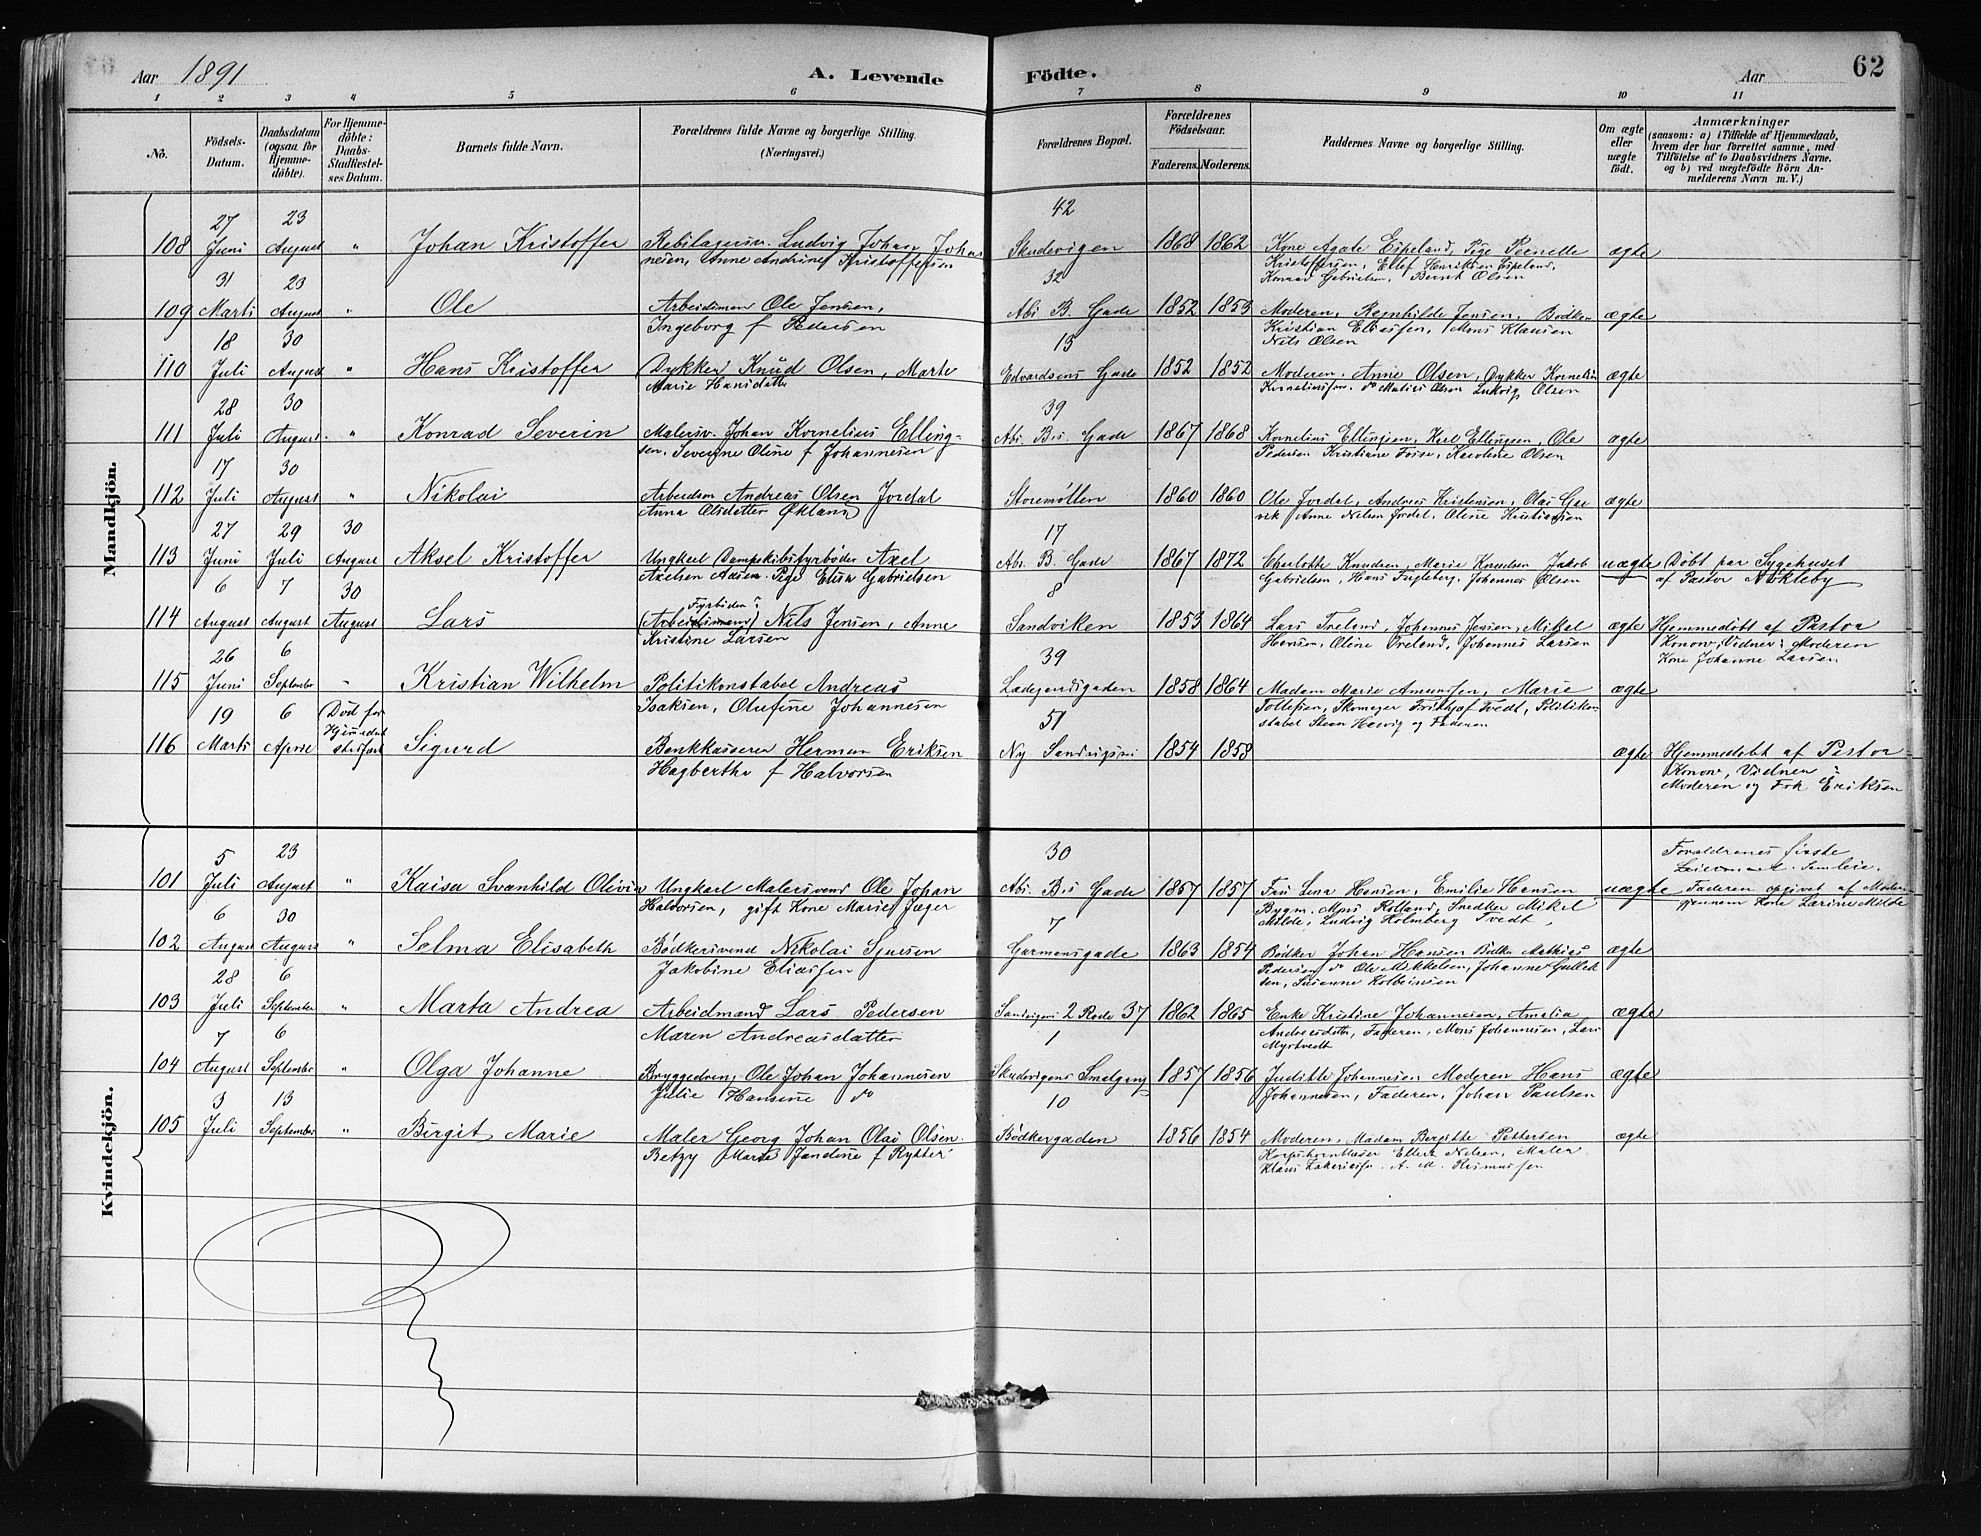 Aar 1891
A. Levende Födte.
Aar
62
1 2 3 4 5 6 7 8 9 10 11
No.
Födsels-Datum.
Daabsdatum (ogsaa for Hjemme-döbte).
For Hjemme-döbte: Daabs-Stadfæstel-ses Datum.
Barnets fulde Navn.
Forældrenes fulde Navne og borgerlige Stilling. (Næringsvei.)
Forældrenes Bopæl.
Forældrenes Födselsaar.
Faderens. Moderens.
Faddernes Navne og borgerlige Stilling.
Om ægte eller uægte födt.
Anmærkninger
(saasom: a) i Tilfælde af Hjemmedaab, hvem der har forrettet samme, med Tilföielse af to Daabsvidners Navne, og b) ved uægtefödte Börn An-melderens Navn m. V.)
Mandkjön.
27 23 42
108 Juni August " Johan Kristoffer Ludvig Johan Johan Skudevigen 1868 1862 Kone Agate Espeland, Pige Pernelle ægte
nesen, Anne Andrine Kristoffersen Kristoffersen, Ellef Henriksen Espeland,
Konrad Gabrielsen, Bernt Olsen
31 23 32
109 Marts August " Ole Arbeidsmand Ole Jensen, Abs B. Gade 1852 1853 Moderen, Ragnhilde Jensen, Bödker ægte
Ingeborg f Pedersen Kristian Eliassen, Mons Klausen
Nils Olsen
18 30 13
110 Juli August " Hans Kristoffer Dykker Knud Olsen, Marte Edvardsens Gade 1852 1852 Moderen, Anne Olsen, Dykker Kornelius ægte
Marie Hansdatter Korneliussen, do Matias Olson Ludvig Olsen
28 30 39
111 Juli August " Konrad Severin Malersv. Johan Kornelius Elling- Abs. Bs. Gade 1867 1868 Kornelius Ellingsen, Karl Ellingsen, Ole ægte
sen, Severine Oline f Johannesen Pedersen Kristiane Fosse, Karoline Olsen
17 30
112 Juli August " Nikolai Arbeidsm Andreas Olsen Jordal Storemøllen 1860 1860 Ole Jordal, Andreas Kristensen, Olai ægte
Anna Olsdatter Økland Anne Nilsen Jordal, Oline Kristiansen
27 29 30 17
113 Juni Juli August Aksel Kristoffer Ungkarl Dampskibsfyrbøder Axel Abs. B. Gade 1867 1872 Charlotte Knudsen, Marie Knudsen Jakob uægte Døbt paa Sygehuset
Axelsen Aasen. Pige Elisa Gabrielsen Gabrielsen, Hans Fugleberg, Johannes Olsen af Pastor Askleby
6 7 30 8
Fyrbøder
114 August August August Lars (Arbeidsmand) Nils Jensen, Anne Sandviken 1853 1864 Lars Treland, Johannes Jensen, Mikal ægte Hjemmedøbt af Pastor
Kristine Larsen Hansen, Oline Treland, Johannes Larsen Konow, Vidner: Moderen
Kone Johanne Larsen
26 6 39
115 Juni September Kristian Wilhelm Politikonstabel Andreas Ladegaardsgaden 1858 1864 Madam Marie Amundsen, Marie ægte
Isaksen, Olufine Johannesen Tollefsen, Skomager Frithjof Tvedt, Politikon
stabel Steen og Faderen
19 6 Død før 51
116 Marts April Sigurd Bankkasserer Herman Eriksen Ny Sandvigsvei 1854 1858 ægte Hjemmedøbt af Pastor
Hagbertha f Halvorsen Konow, Vidner:
Moderen og Frk Eriksen
Kvindekjön.
5 23 30 Forældrenes første
Leiermaal.
101 Juli August " Kaisa Svanhild Olivia Ungkarl Malersvend Ole Johan Abs. Bs Gade 1857 1857 Fru Lina Hansen, Emilie Hansen uægte Faderen opgivet af Moderen
Halvorsen, gift Kone Marie Jæger Bygm. Mons Rolland, Snedker Mikel gjennem Kone Larine Milde
Milde, Ludvig Holmberg Tvedt
6 30 7
102 August August " Selma Elisabeth Bødkersvend Nikolai Sjursen Garmansgade 1863 1854 Bødker Johan Hansen Bødker Mathias ægte
Jakobine Eliassen Pedersen do Ole Mikkelsen, Johanne Gullik
sen, Susanne Kolbeinsen
28 6
103 Juli September " Marta Andrea Arbeidmand Lars Pedersen Sandvigsvei 2 Rode 37 1862 1865 Enke Kristine Johannesen, Amalia ægte
Maren Andreasdatter Andreasdatter, Faderen, Mons Johannesen, Lars
Myrtvedt
7 6 1
104 August September " Olga Johanne Bryggedreng Ole Johan Johannesen Skudevigens Smalgang 1857 1856 Juditte Johannesen, Moderen Hans ægte
Julie Hansine do Johannesen, Faderen, Johan Paulsen
3 13 10
105 Juli September " Birgit Marie Maler Georg Johan Olai Olsen Bødkergaden 1856 1854 Moderen, Madam Bergitte Pettersen ægte
Betzy Marie Jandine f Rytter Ellert Nilsen, Maler
Klaus Zakariasn. A. M. Rasmussen